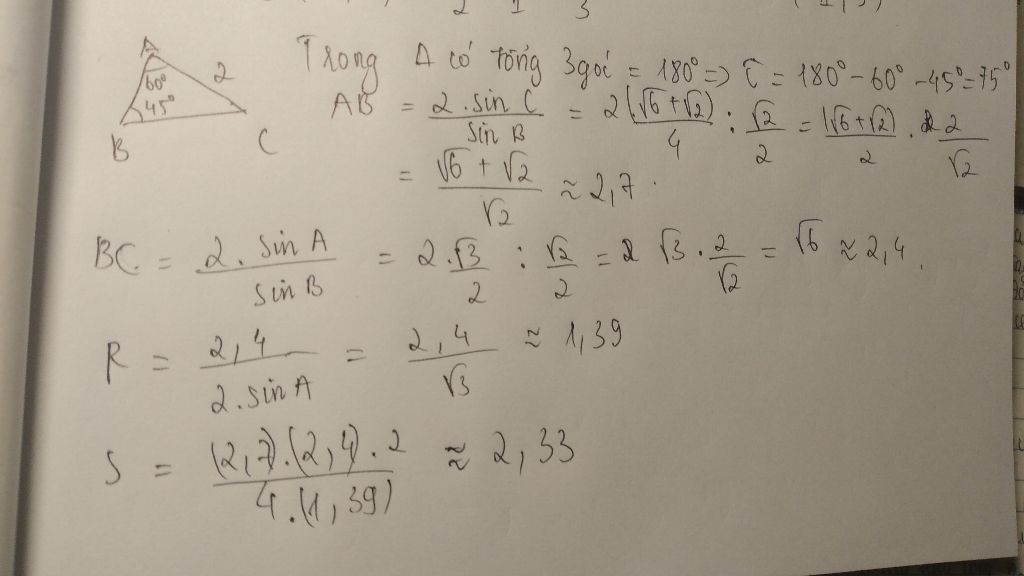 2 1 3
A
60°
2
45°
B
C
Trong Δ có tổng 3 góc = 180° => Ĉ = 180° - 60° - 45° = 75°
AB = 2.sin C / sin B = 2(√6 + √2)/4 : √2/2 = (√6 + √2)/2 . 2/√2
= (√6 + √2)/√2 ≈ 2,7.
BC = 2. sin A / sin B = 2.√3/2 : √2/2 = √3 . 2/√2 = √6 ≈ 2,4.
R = 2,4 / 2.sin A = 2,4/√3 ≈ 1,39
S = (2,7).(2,4).2 / 4.(1,39) ≈ 2,33